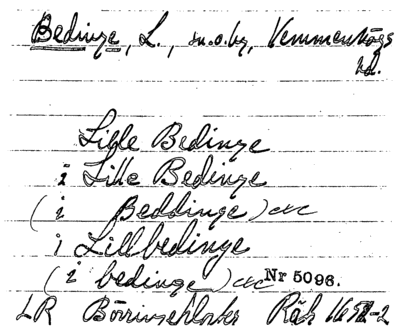 Bedinge, L., sn. o. by, Vemmenhögs
hd.
Lille Bedinge
i Lille Bedinge
(i Beddinge) etc
i Lillbedinge
(i bedinge) etc Nr 5096.
LR Börringekloster Räk 1652-2